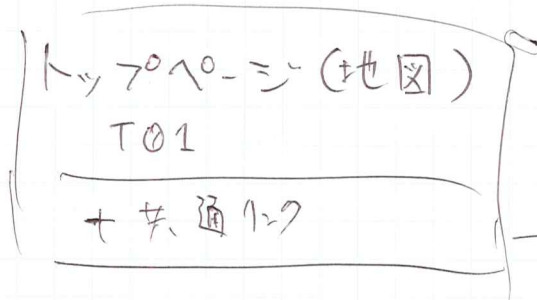 トップページ(地図)
T01
+ 共通リンク